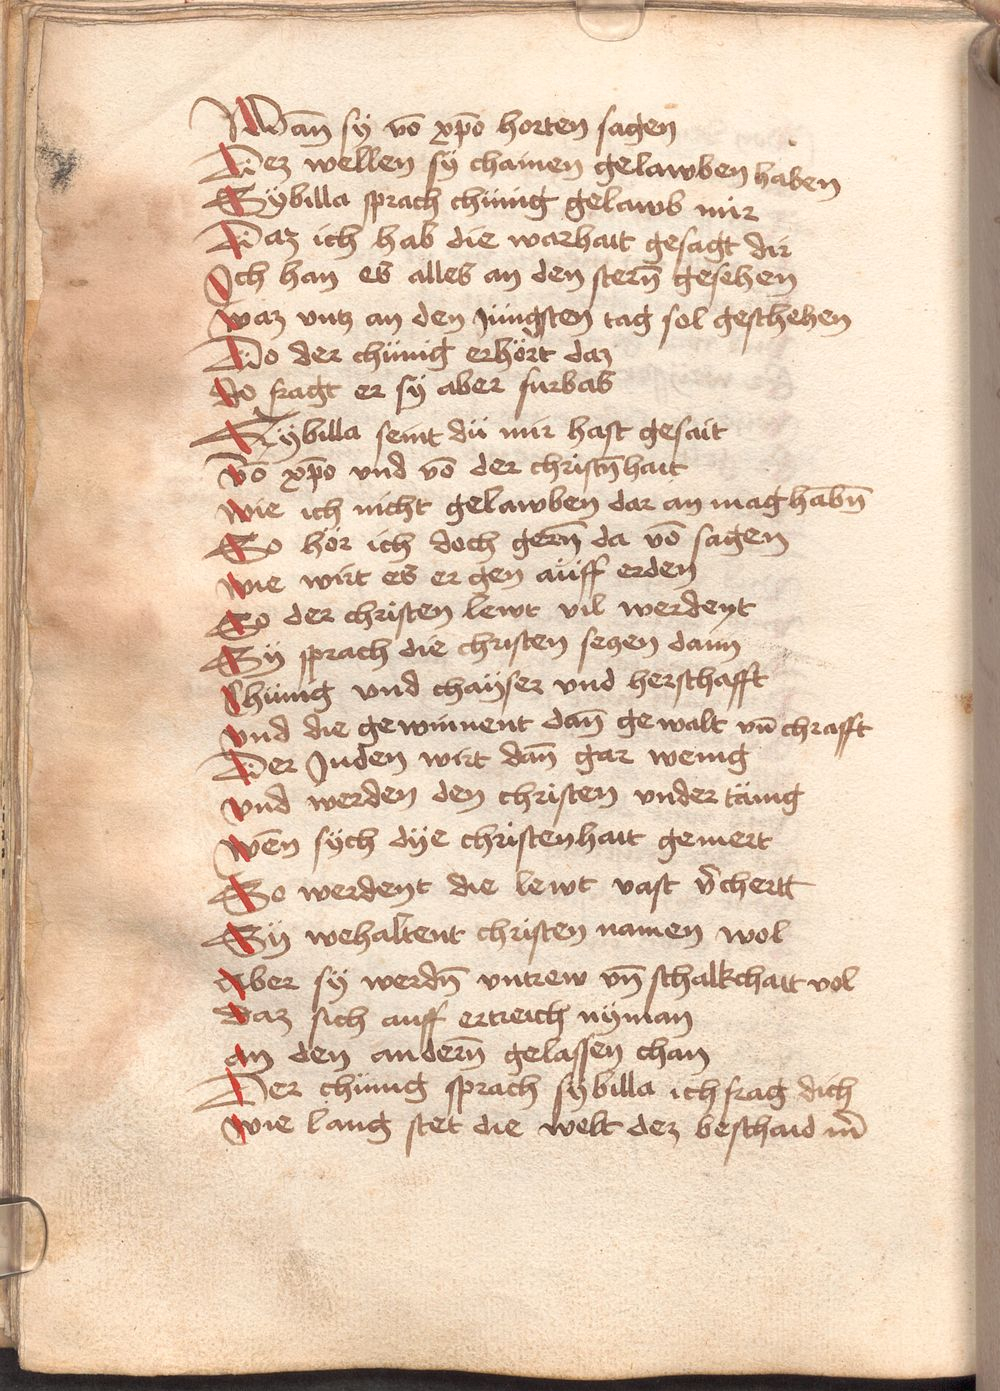 Wan̄ sÿ vō xp̄o horten sagen
Dez wellen sÿ chainen gelawben haben
Sÿbilla sprach chünig gelawb mir
Daz ich hab die warhait gesagt dir
Ich han es alles an den stern̄ gesehen
waz vntz an den Jüngsten tag sol geschehen
Do der chünig erhört daz
do fragt er sÿ aber furbas
Sÿbilla seint dü mir hast gesait
vō xp̄o vnd vō der christn̄hait
wie ich nicht gelawben dar an mag habn̄
So hör ich doch gern̄ da vō sagen
wie wirt es er gen aüff erden
So der christen lewt vil werdent
Sÿ sprach die christen sezen dann
Chünig vnd chaÿser vnd herschafft
vnd die gewinnent dan̄ gewalt vn̄ chrafft
Der Juden wirt dan̄ gar wenig
vnd werden den christen vndertänig
wen̄ sÿch dÿe christenhait gemert
So werdent die lewt vast v̄chertt
Sÿ wehaltent christen namen wol
aber sÿ werdn̄ vntrew vn̄ schalkchait vol
daz sich auff ertreich nÿman
an den andern̄ gelassen chan
Der chünig sprach sÿbilla ich frag dich
wie lang stet die welt dez beschaid m̄